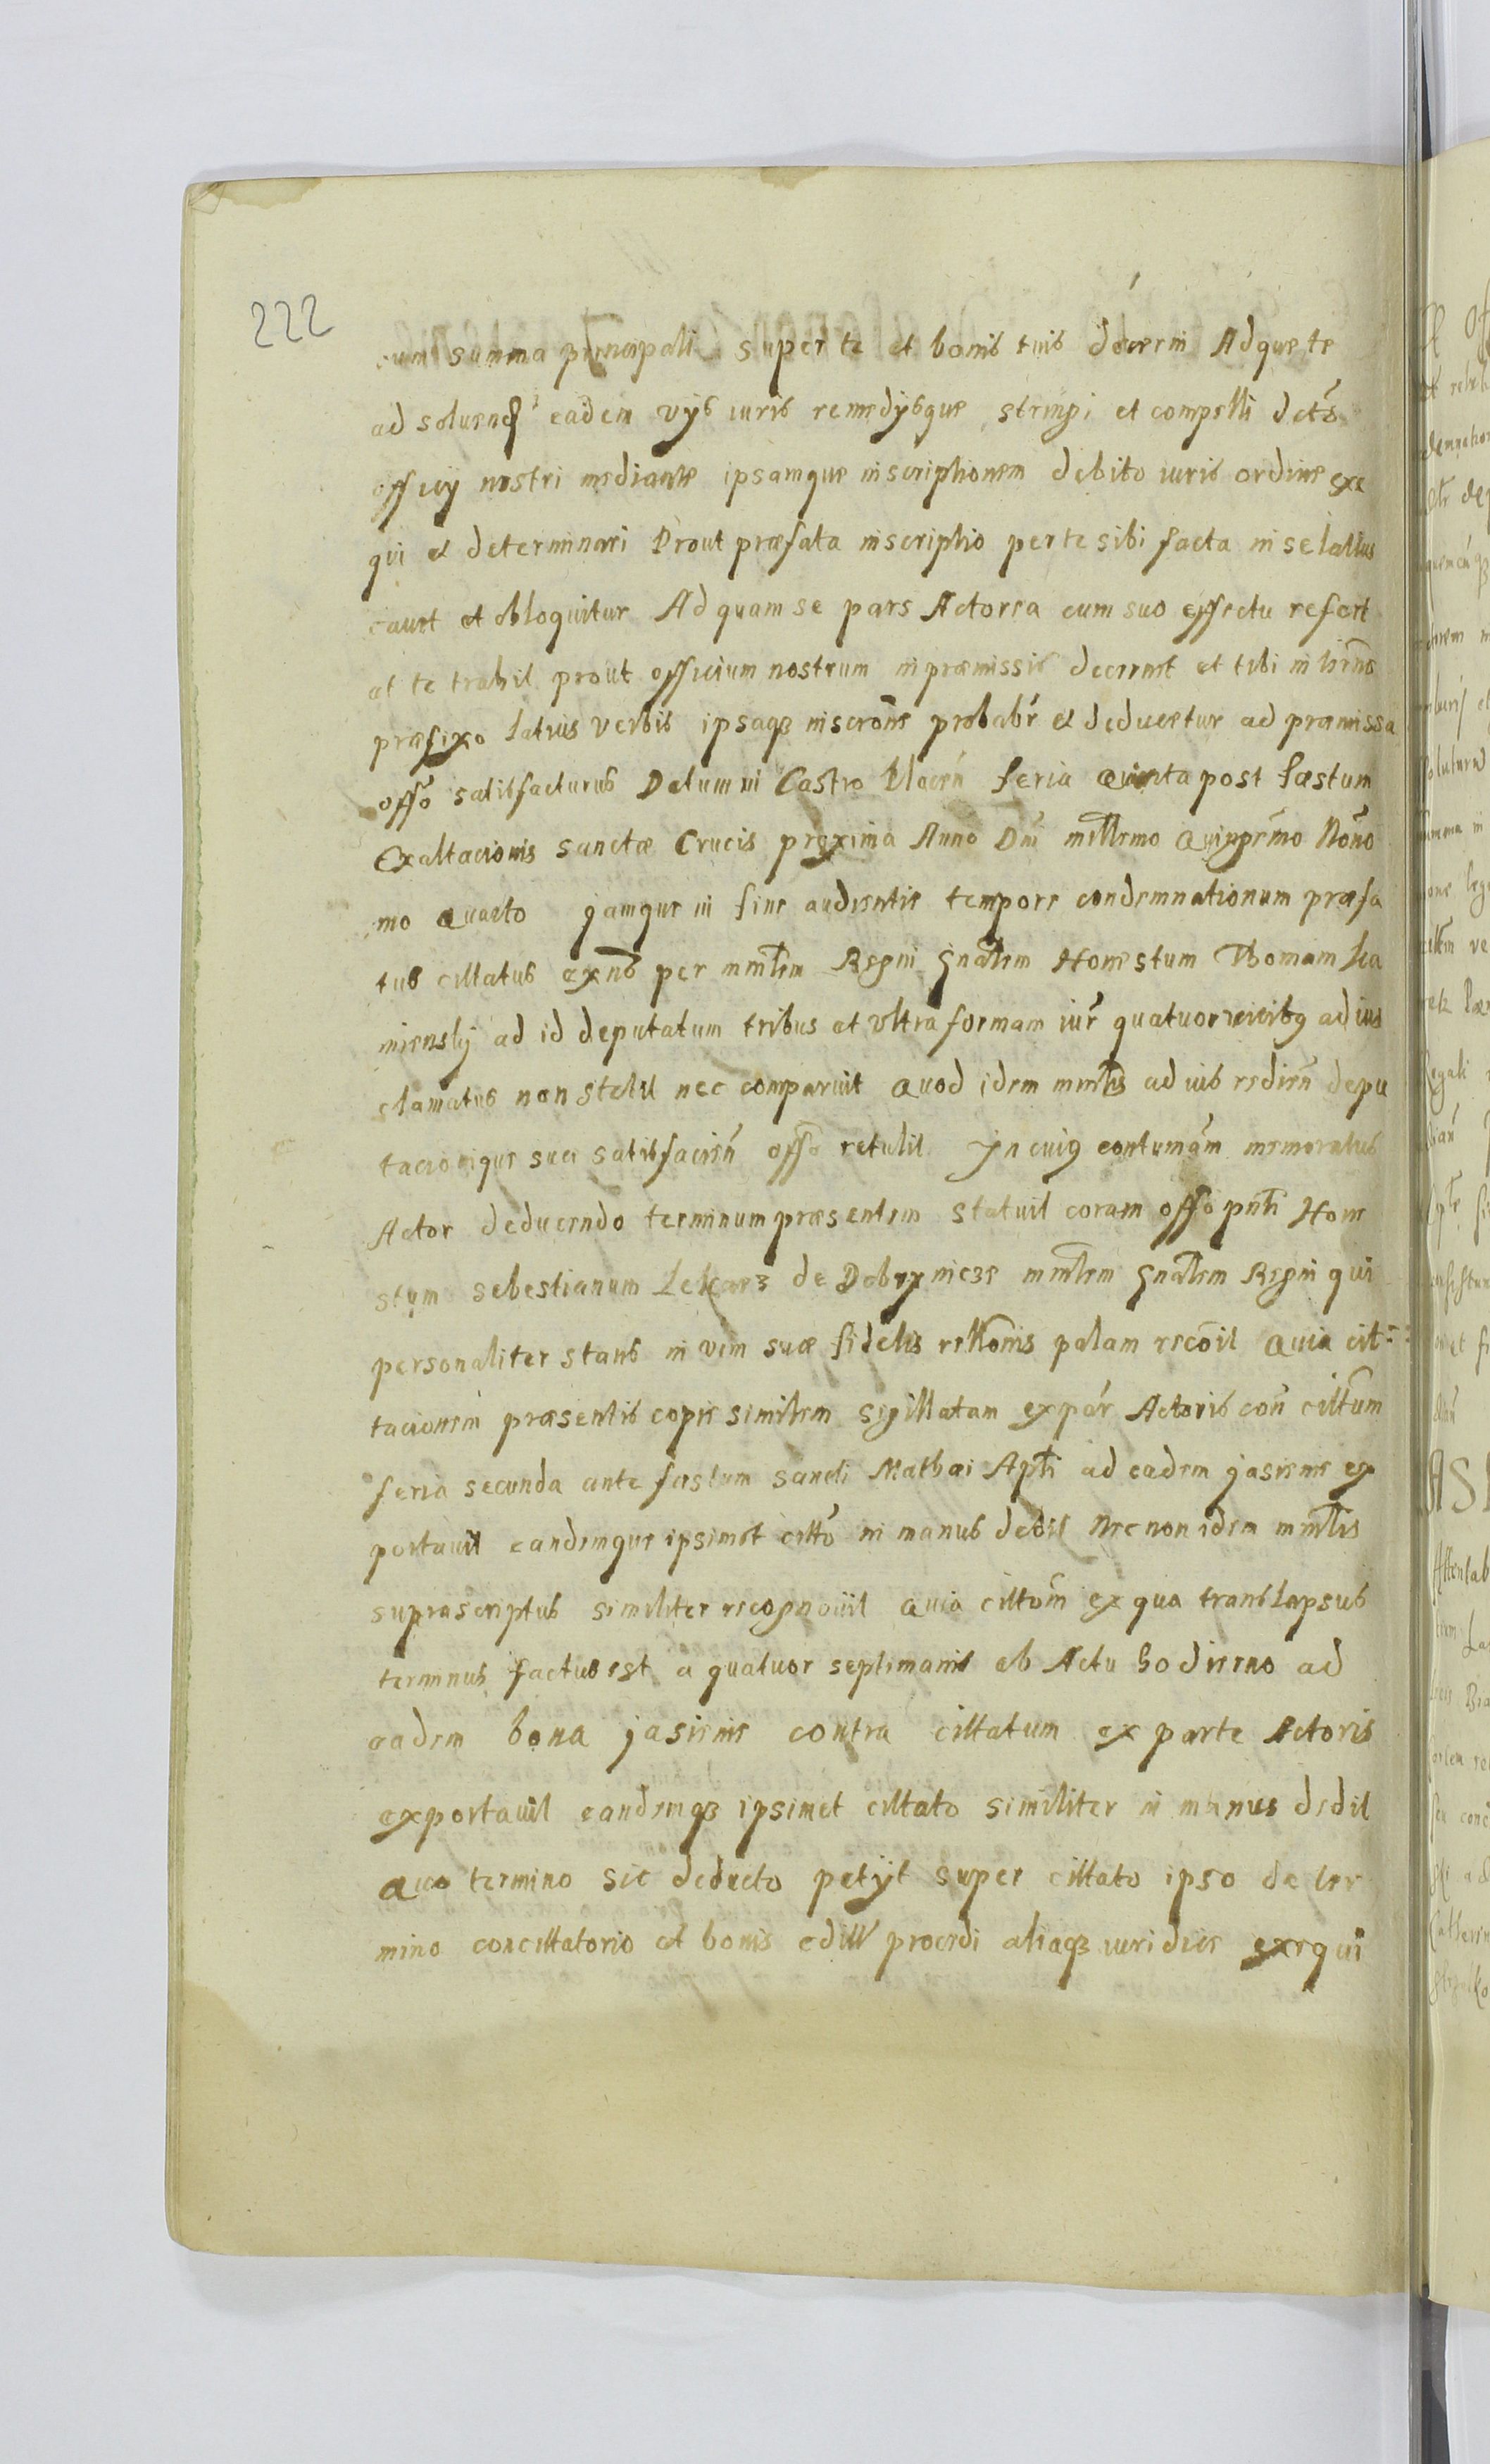 222
cum summa principali super te et bonis tuis decerni Adque te
ad soluend eadem vijs iuris remedijsque stringi et compelli dcto
officij nostri mediante ipsamque inscriptionem debito iuris ordine exe
qui et determinari Prout præfata inscriptio per te sibi facta in se latius
cauet et obloquitur Ad quam se pars Actorea cum suo effectu refert
at te trahit prout officium nostrum in præmissis decernet et tibi in tirmo
præfixo latius verbis ipsaqȝ inscrone probabr et deducetur ad præmissa
offo satisfacturus Datum in Castro feria Quinta post fæstum
Exaltacionis sanctæ Crucis proxima Anno Dni millemo Quingemo Nono
mo Quarto jamque in fine audientie tempore condemnationum præfa
tus cittatus ex nō per mintlem Regni gnalem Honestum Thomam
ad id deputatum tribus et vltra formam iur quatuor vicibȝ ad ius
clamatus non stetit nec comparuit Quod idem mintlis ad iuis redien depu
tacionique suæ satisfacien offo retulit Jn cuiȝ contumam memoratus
Actor deducendo terminum præsentem statuit coram offo pnti Hone
stum sebestianum Lekarz de Dobrznicze mintlem gnalem Regni qui
personaliter stans in vim suæ fidelis rellonis palam recoit Quia cit-
tacionem præsentis copie similem sigillatam ex par Actoris con cittum
feria secunda ante fæstum sancti Mathæi Apli ad eadem jasienie ex
portauit eandemque ipsimet citto in manus dedit Necnon idem mintlis
suprascriptus similiter recognouit Quia cittom ex qua translapsus
terminus factus est a quatuor septimanis ab Actu hodierno ad
eadem bona jasienie contra cittatum ex parte Actoris
exportauit eandemqȝ ipsimet cittato similiter in manus dedit
Quo termino sic deducto petijt super cittato ipso de ter
mino concittatorio et bonis procedi aliaqȝ iuridice exequi